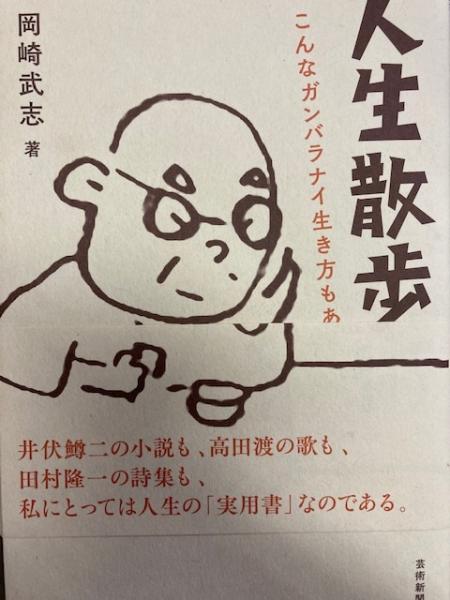 人生散歩
こんなガンバラナイ生き方もあ
岡崎武志 著
井伏鱒二の小説も、高田渡の歌も、
田村隆一の詩集も、
私にとっては人生の「実用書」なのである。
芸術新聞